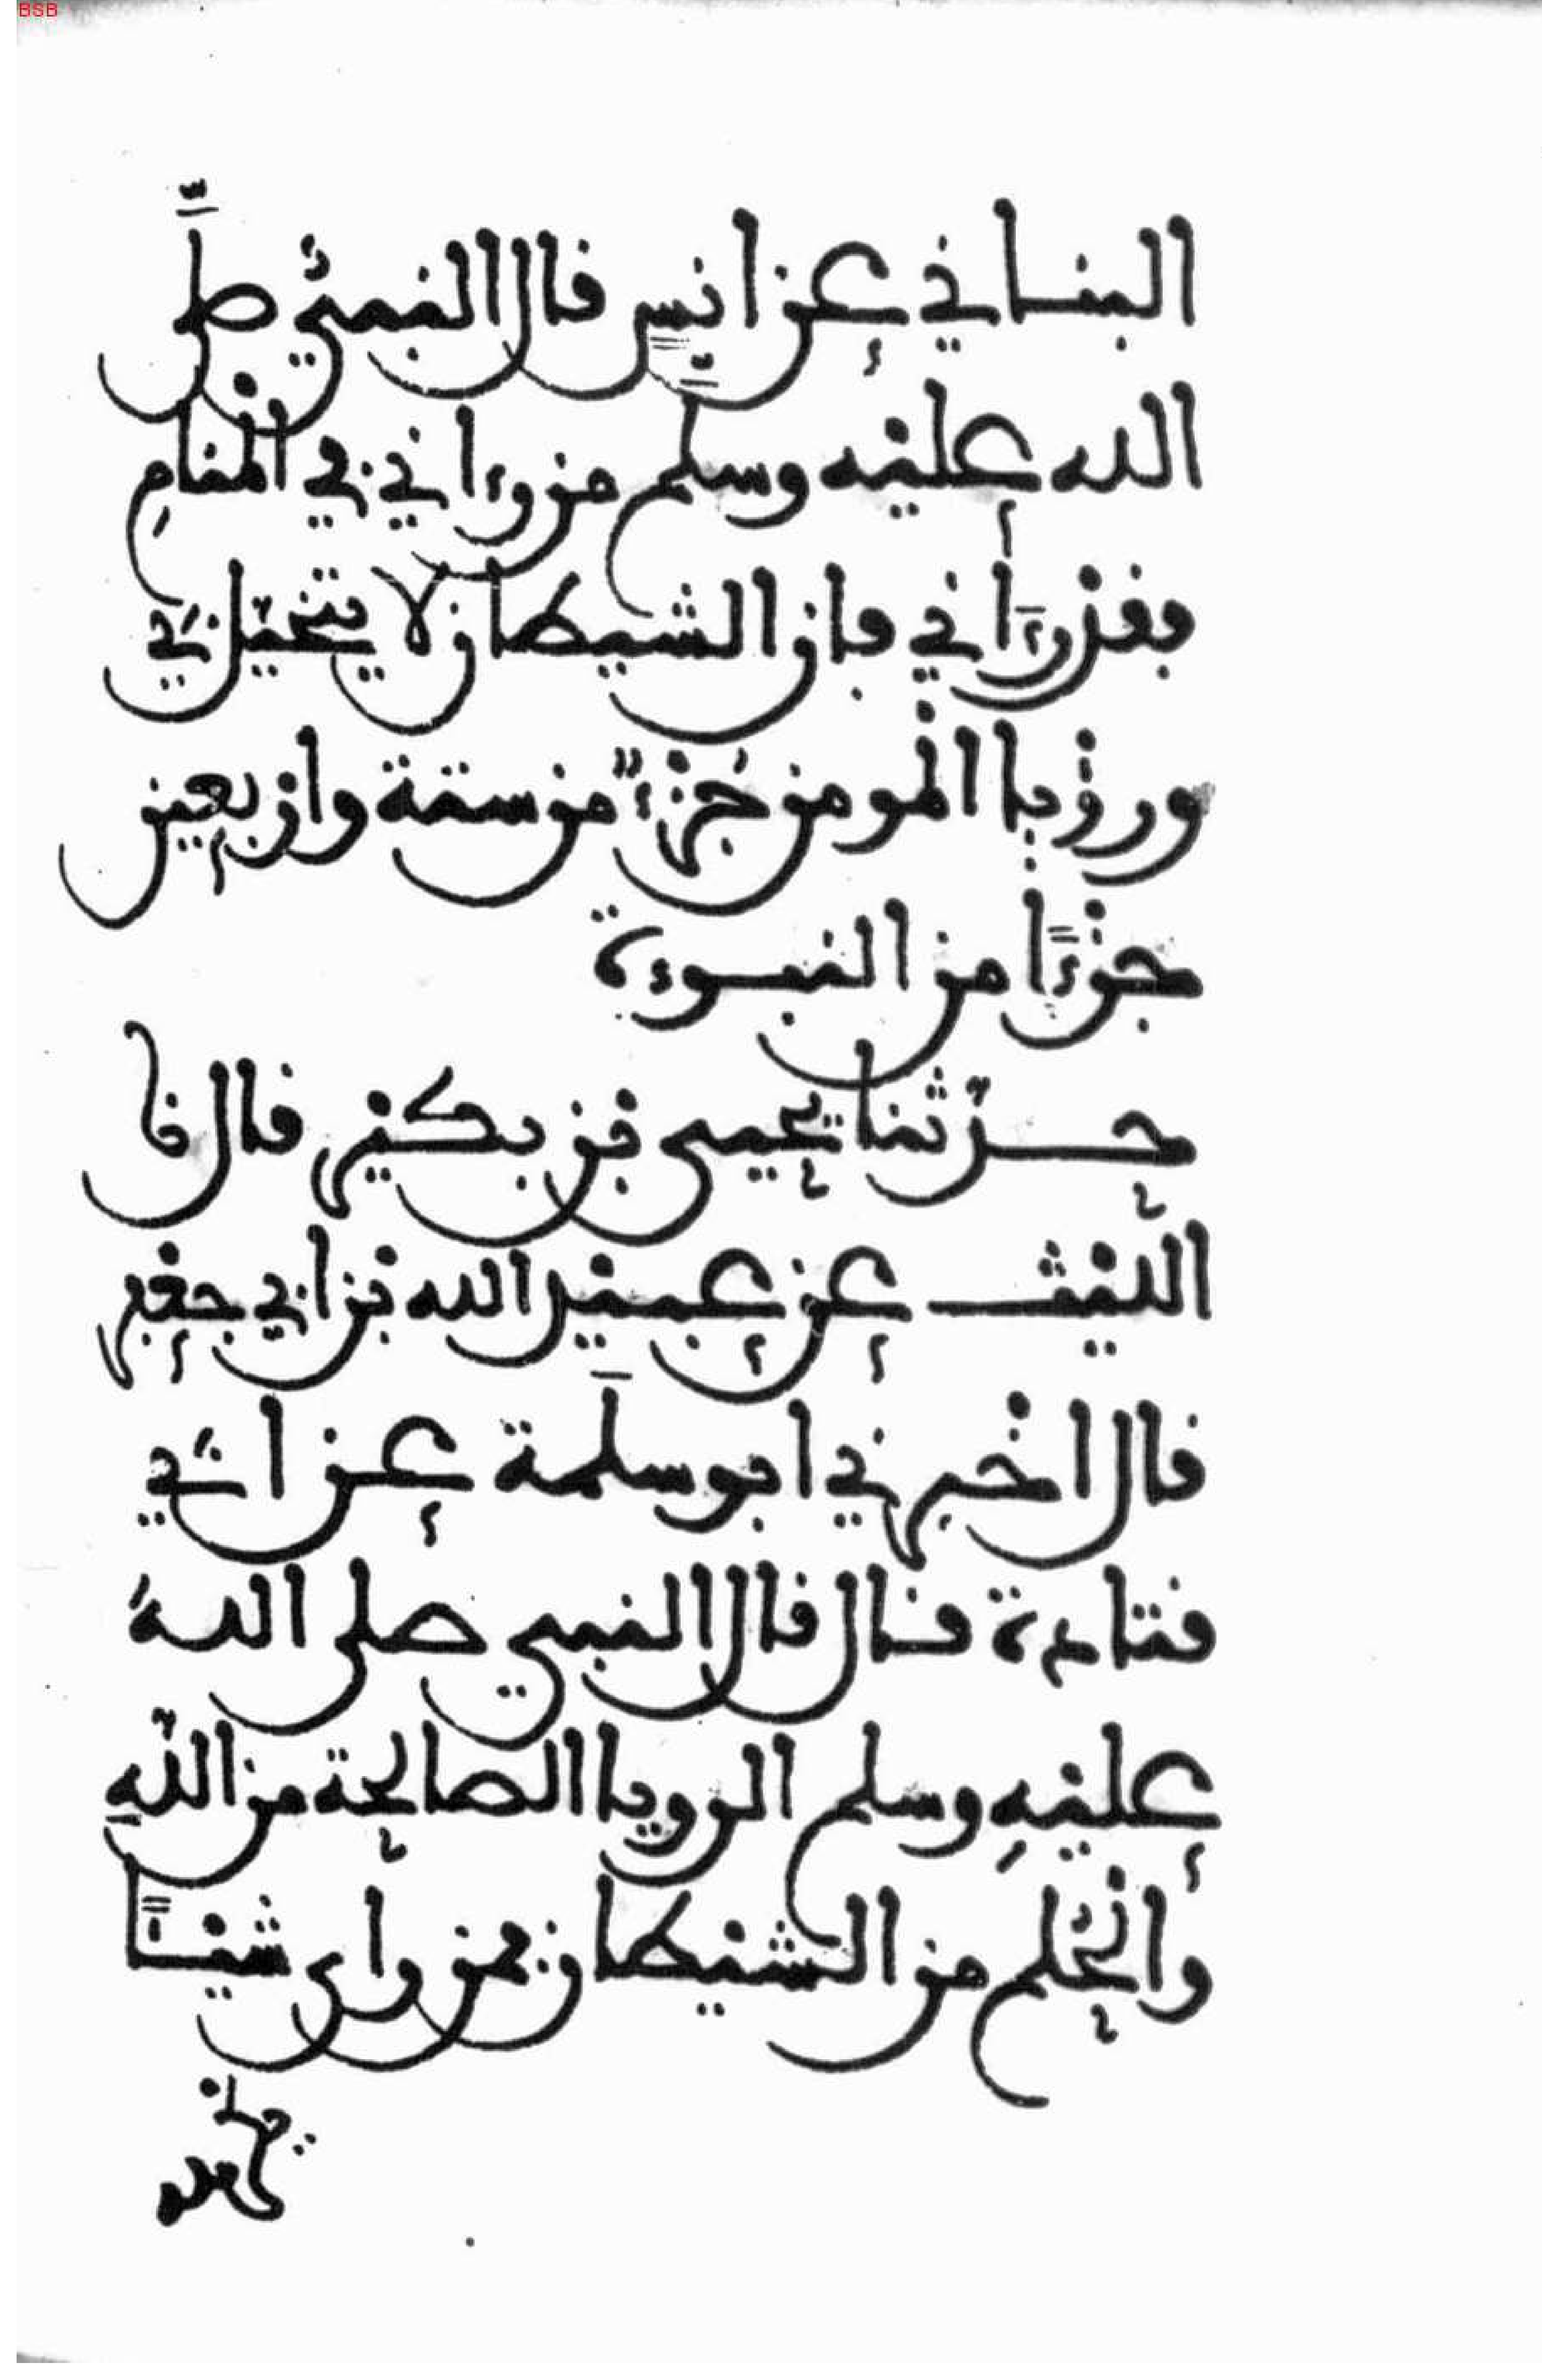 BSB
البناني عن انس قال النبي صلى
الله عليه وسلم من رءاني في المنام
فقد رءاني فان الشيطان لا يتخيل بي
ورؤيا المومن جزء من ستة واربعين
جزءا من النبوءة
حدثنا يحيى بن بكير قال نا
الليث عن عبيد الله بن ابي جعفر
قال اخبرني ابو سلمة عن ابي
قتادة قال قال النبي صلى الله
عليه وسلم الرويا الصالحة من الله
والحلم من الشيطان فمن راى شيئا